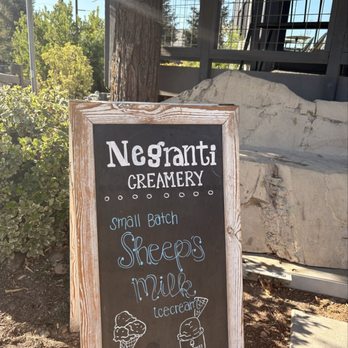 Negranti
CREAMERY
small Batch
Sheep's
Milk
Icecream